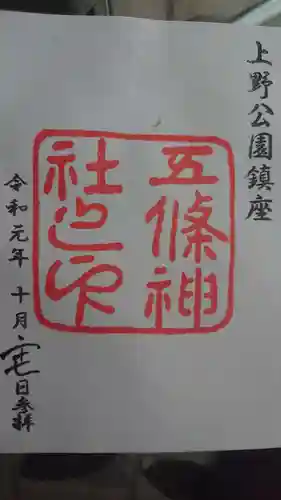 上野公園鎮座
五條神
社之印
令和元年十月
日参拝